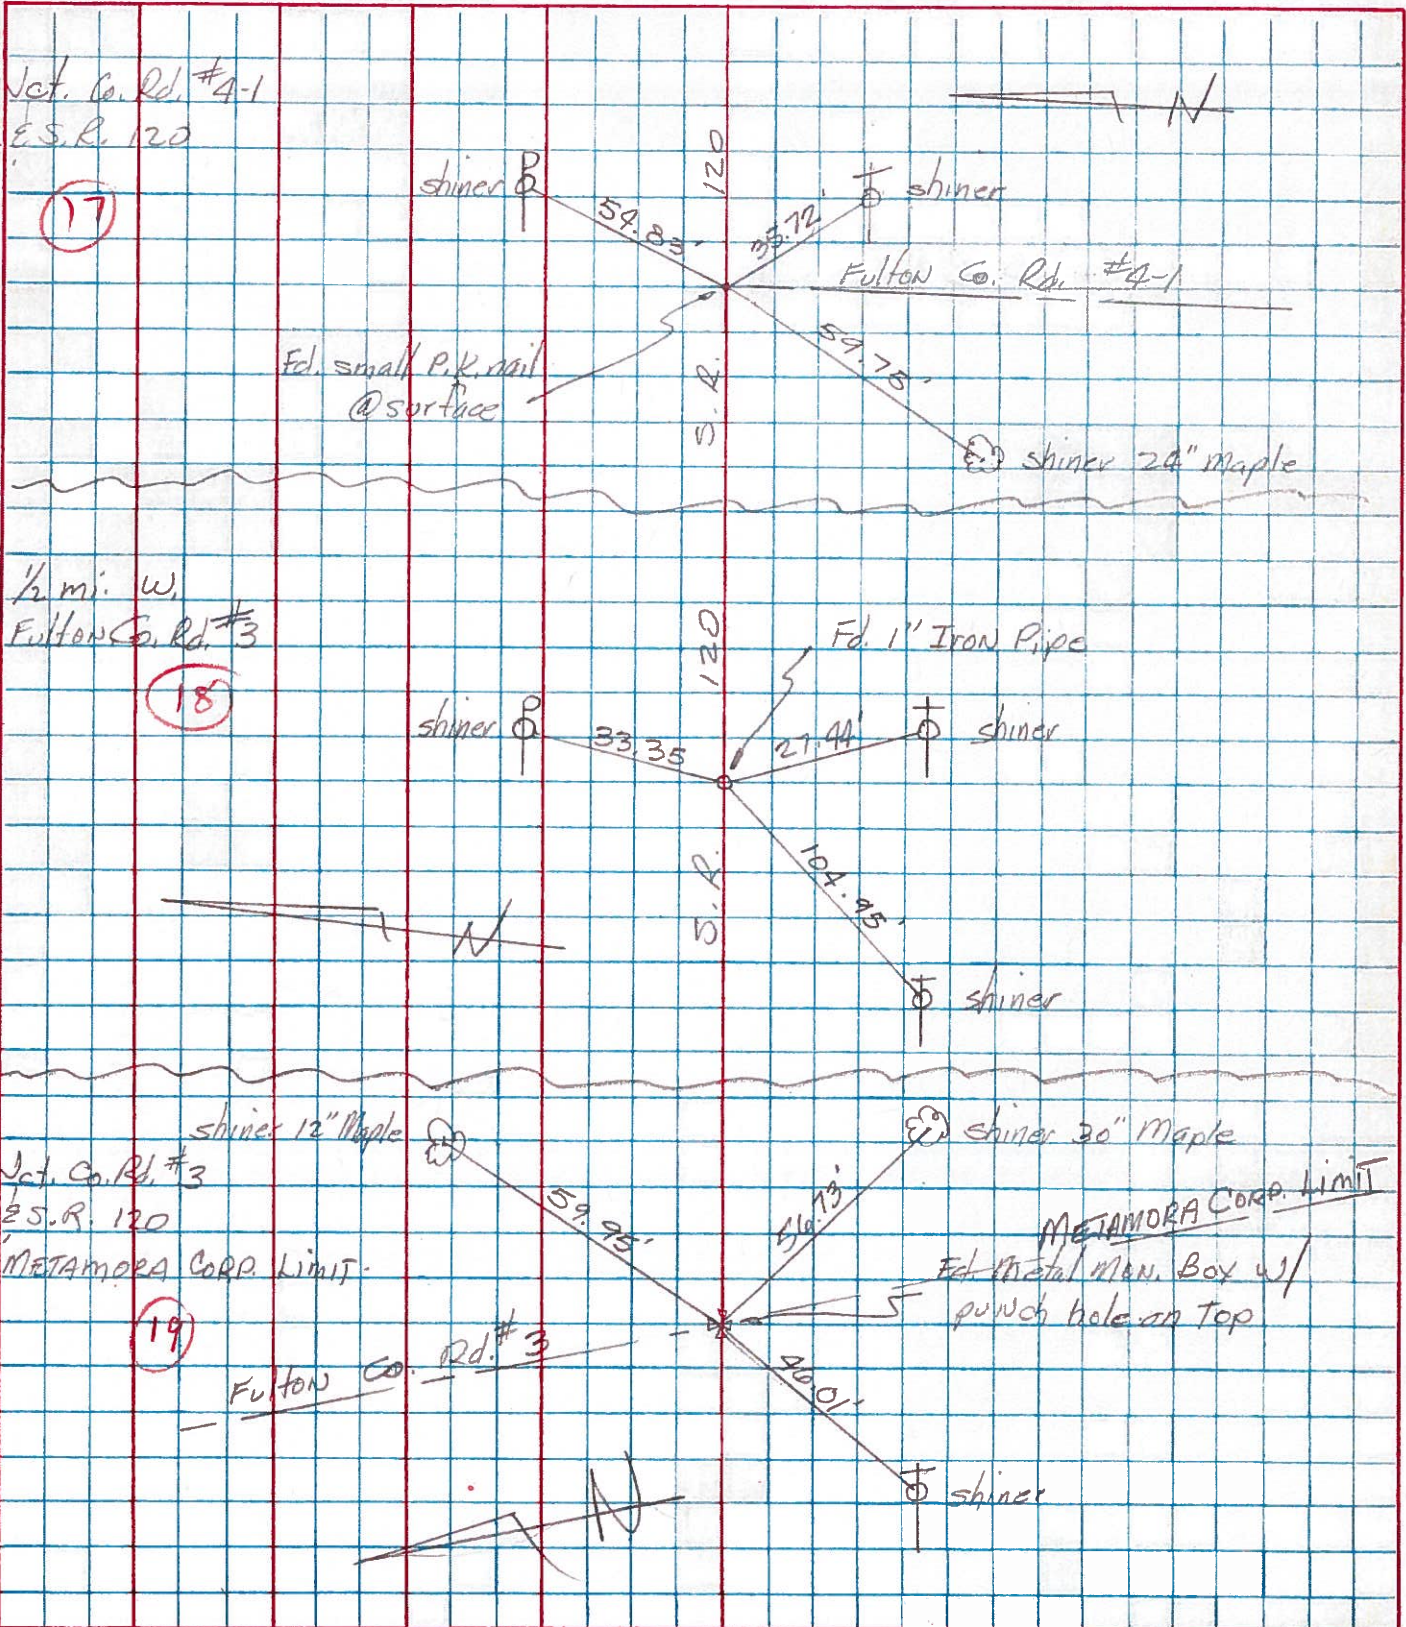 Jct. Co. Rd. #4-1
& S.R. 120
17
N
shiner
54.83'
120
35.72'
shiner
Fulton Co. Rd. #4-1
Fd. small P.K. nail
@ surface
S.R.
59.78'
shiner 24" Maple
1/2 mi. W.
Fulton Co. Rd. #3
18
120
Fd. 1" Iron Pipe
shiner
33.35
27.44'
shiner
S.R.
104.95'
N
shiner
shiner 12" Maple
shiner 30" Maple
Jct. Co. Rd. #3
& S.R. 120
METAMORA CORP. LIMIT.
19
59.95'
56.73'
METAMORA CORP. LIMIT
Fd. Metal Mon. Box w/
punch hole on Top
Fulton Co. Rd. #3
46.01'
N
shiner